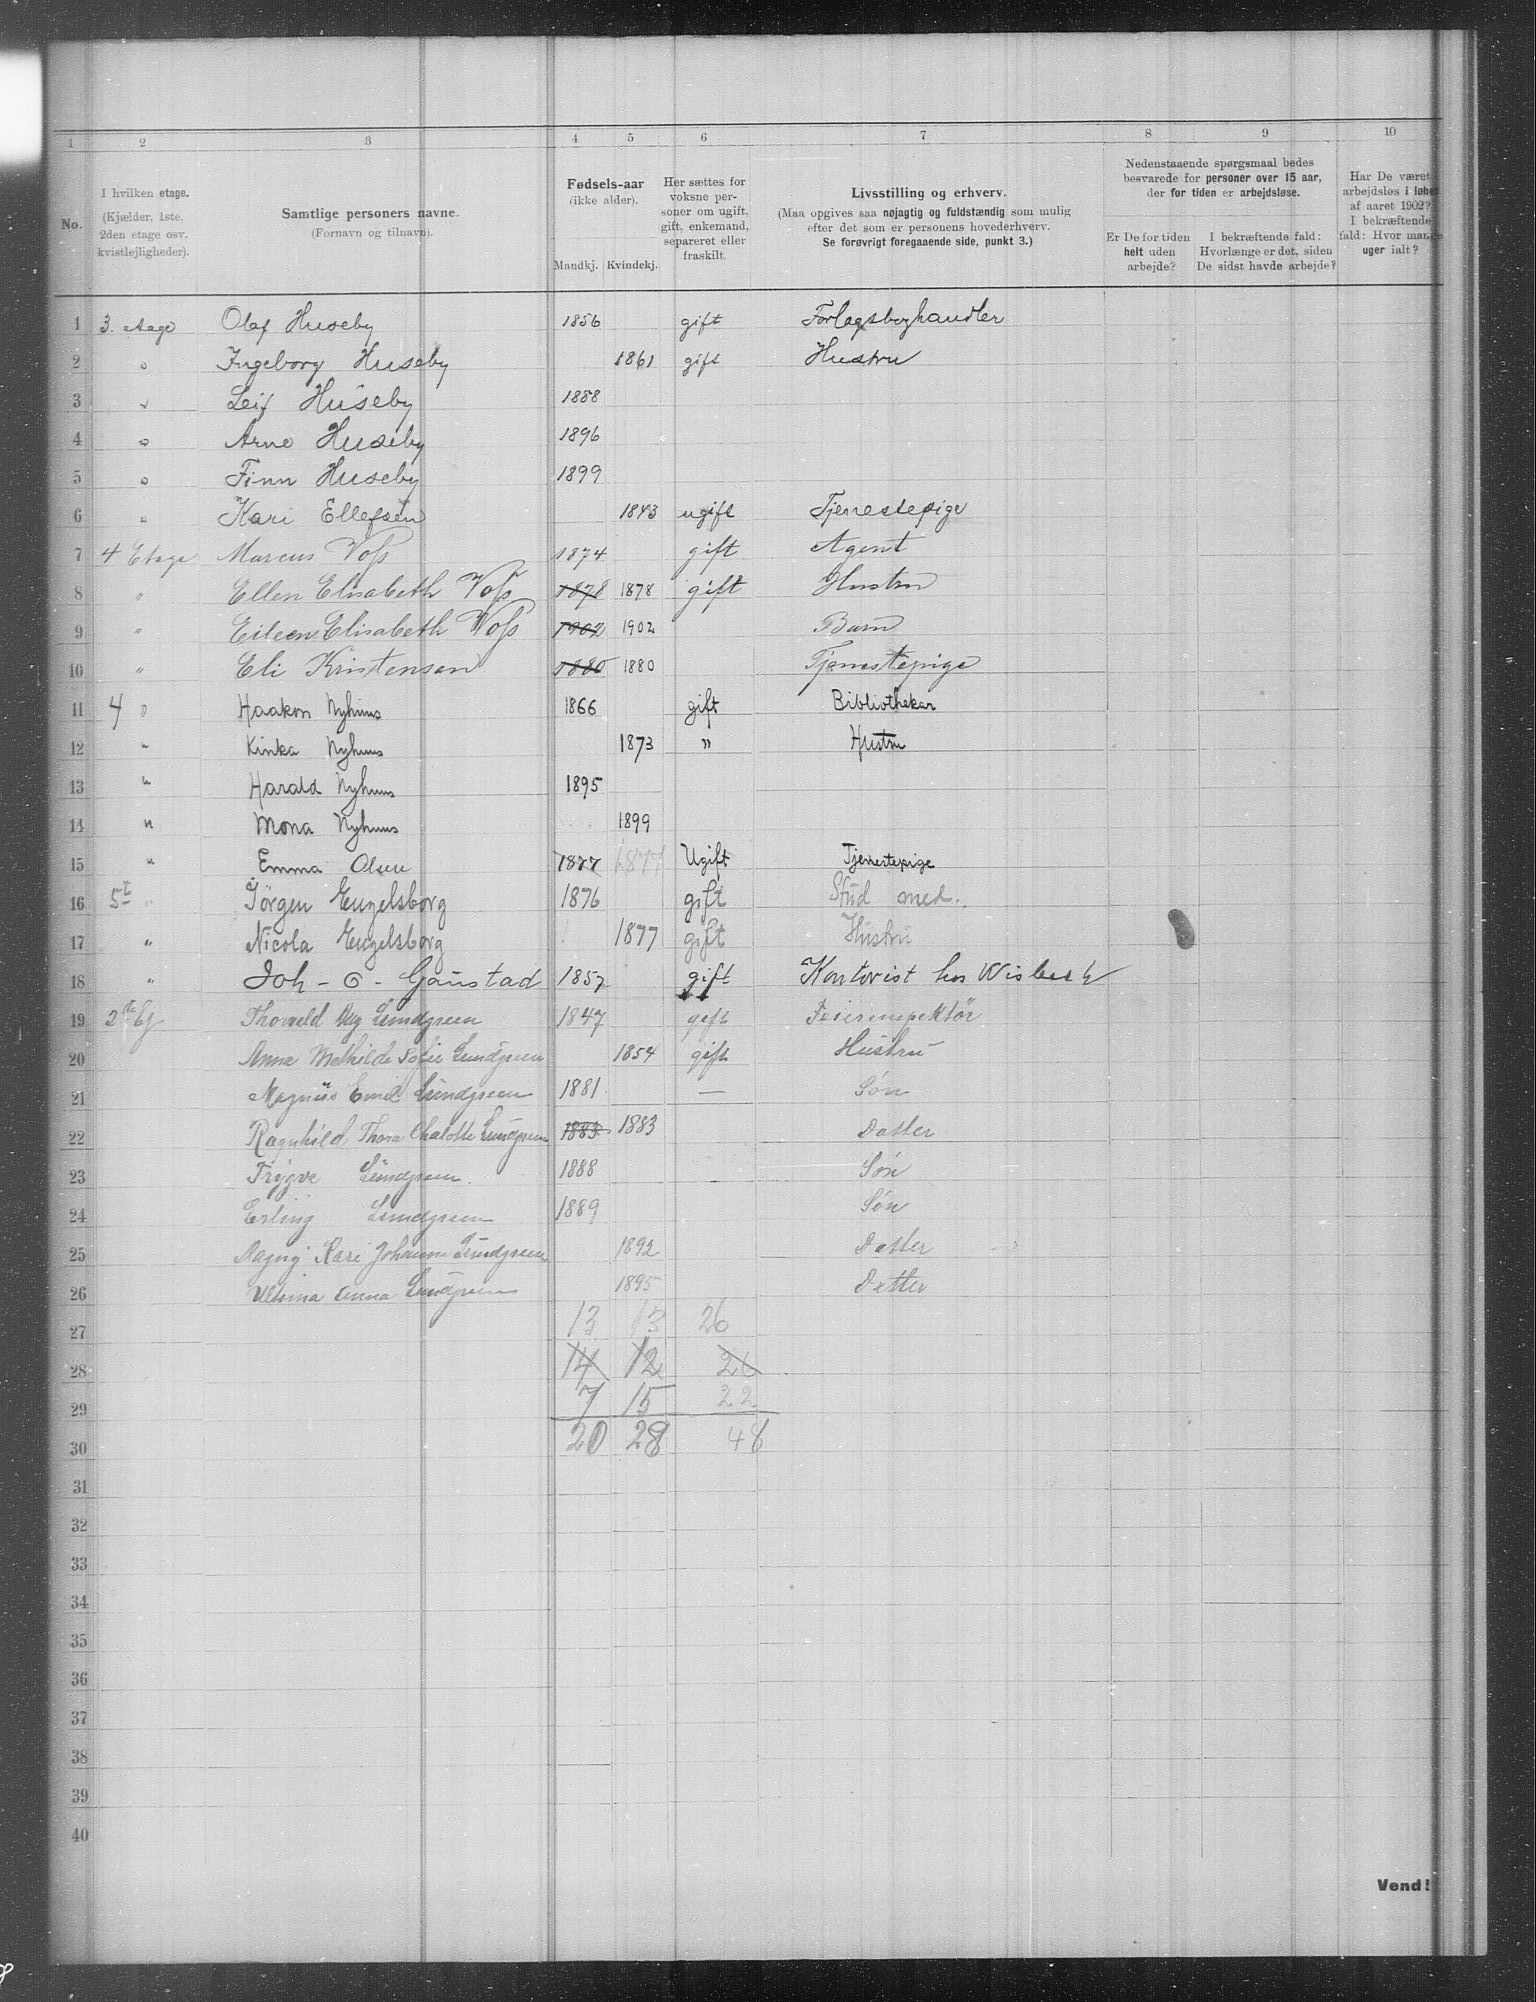 1 2 3 4 5 6 7 8 9 10
No.
I hvilken etage.
(Kjælder, 1ste.
2den etage osv.
kvistlejligheder).
Samtlige personers navne.
(Fornavn og tilnavn).
Fødsels-aar
(ikke alder).
Mandkj. Kvindekj.
Her sættes for
voksne per-
soner om ugift,
gift, enkemand,
separeret eller
fraskilt.
Livsstilling og erhverv.
(Maa opgives saa nøjagtig og fuldstændig som mulig
efter det som er personens hovederhverv.
Se forøvrigt foregaaende side, punkt 3.)
Nedenstaaende spørgsmaal bedes
besvarede for personer over 15 aar,
der for tiden er arbejdsløse.
Er De for tiden
helt uden
arbejde?
I bekræftende fald:
Hvorlænge er det, siden
De sidst havde arbejde?
Har De været
arbejdsløs i løbet
af aaret 1902?
I bekræftende
fald: Hvor mange
uger ialt?
1 3. Etage Olaf Huseby 1856 gift Forlagsboghandler
2 " Ingeborg Huseby 1861 gift Hustru
3 " Leif Huseby 1888
4 " Arne Huseby 1896
5 " Finn Huseby 1899
6 " Kari Ellefsen 1843 ugift Tjenestepige
7 4 Etage Marcus Voss 1874 gift Agent
8 " Ellen Elisabeth Voss 1878 1878 gift Hustru
9 " Eileen Elisabeth Voss 1902 1902 Barn
10 " Eli Kristensen 1880 1880 Tjenestepige
11 4 " Haakon Nyhuus 1866 gift Bibliothekar
12 " Kinka Nyhuus 1873 " Hustru
13 " Harald Nyhuus 1895
14 " Mona Nyhuus 1899
15 " Emma Olsen 1877 1877 Ugift Tjenestepige
16 5t " Jörgen Engelsborg 1876 gift Stud med.
17 " Nicola Engelsborg 1877 gift Hustru
18 " Joh - O - Gaustad 1857 gift Kontorist hos Wisbech
19 2de Etg Thorvald Aug Lundgreen 1847 gift Feierinspektør
20 Anna Mathilde Sofie Lundgreen 1854 gift Hustru
21 Magnus Emil Lundgreen 1881 — Søn
22 Ragnhild Thora Chalotte Lundgreen 1883 1883 Datter
23 Trygve Lundgreen 1888 Søn
24 Erling Lundgreen 1889 Søn
25 Dagny Kari Johanne Lundgreen 1892 Datter
26 Anna Lundgreen 1895 Datter
27 13 13 26
28 14 12 26
29 7 15 22
30 20 28 48
31
32
33
34
35
36
37
38
39
40
Vend!